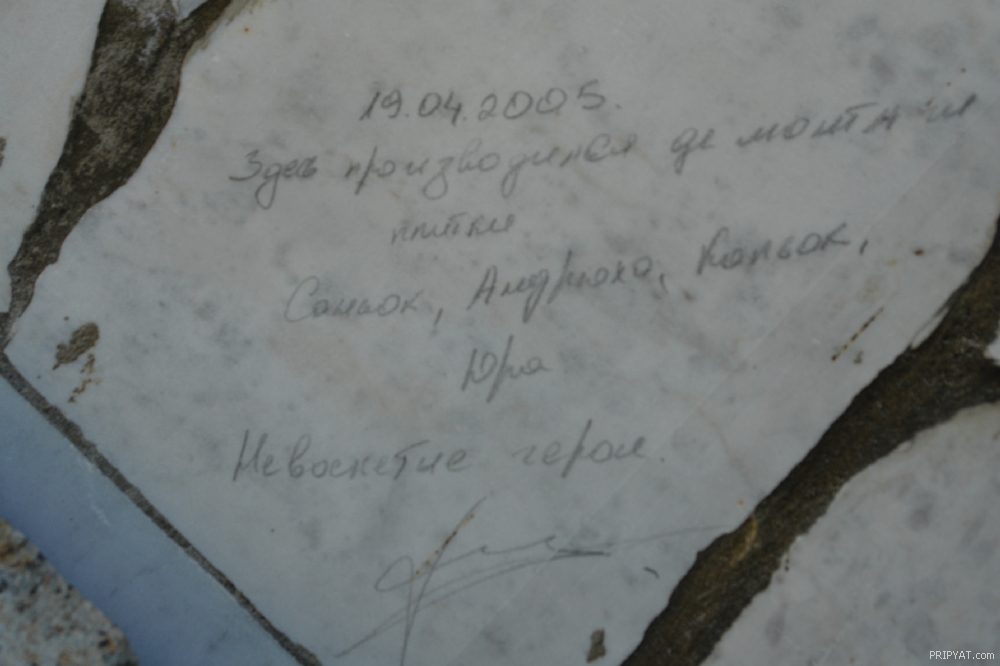 19.04.2005.
Здесь производился демонтаж
плитки
Саньок, Андрюха, Кольок,
Юра
герои.
PRIPYAT.com